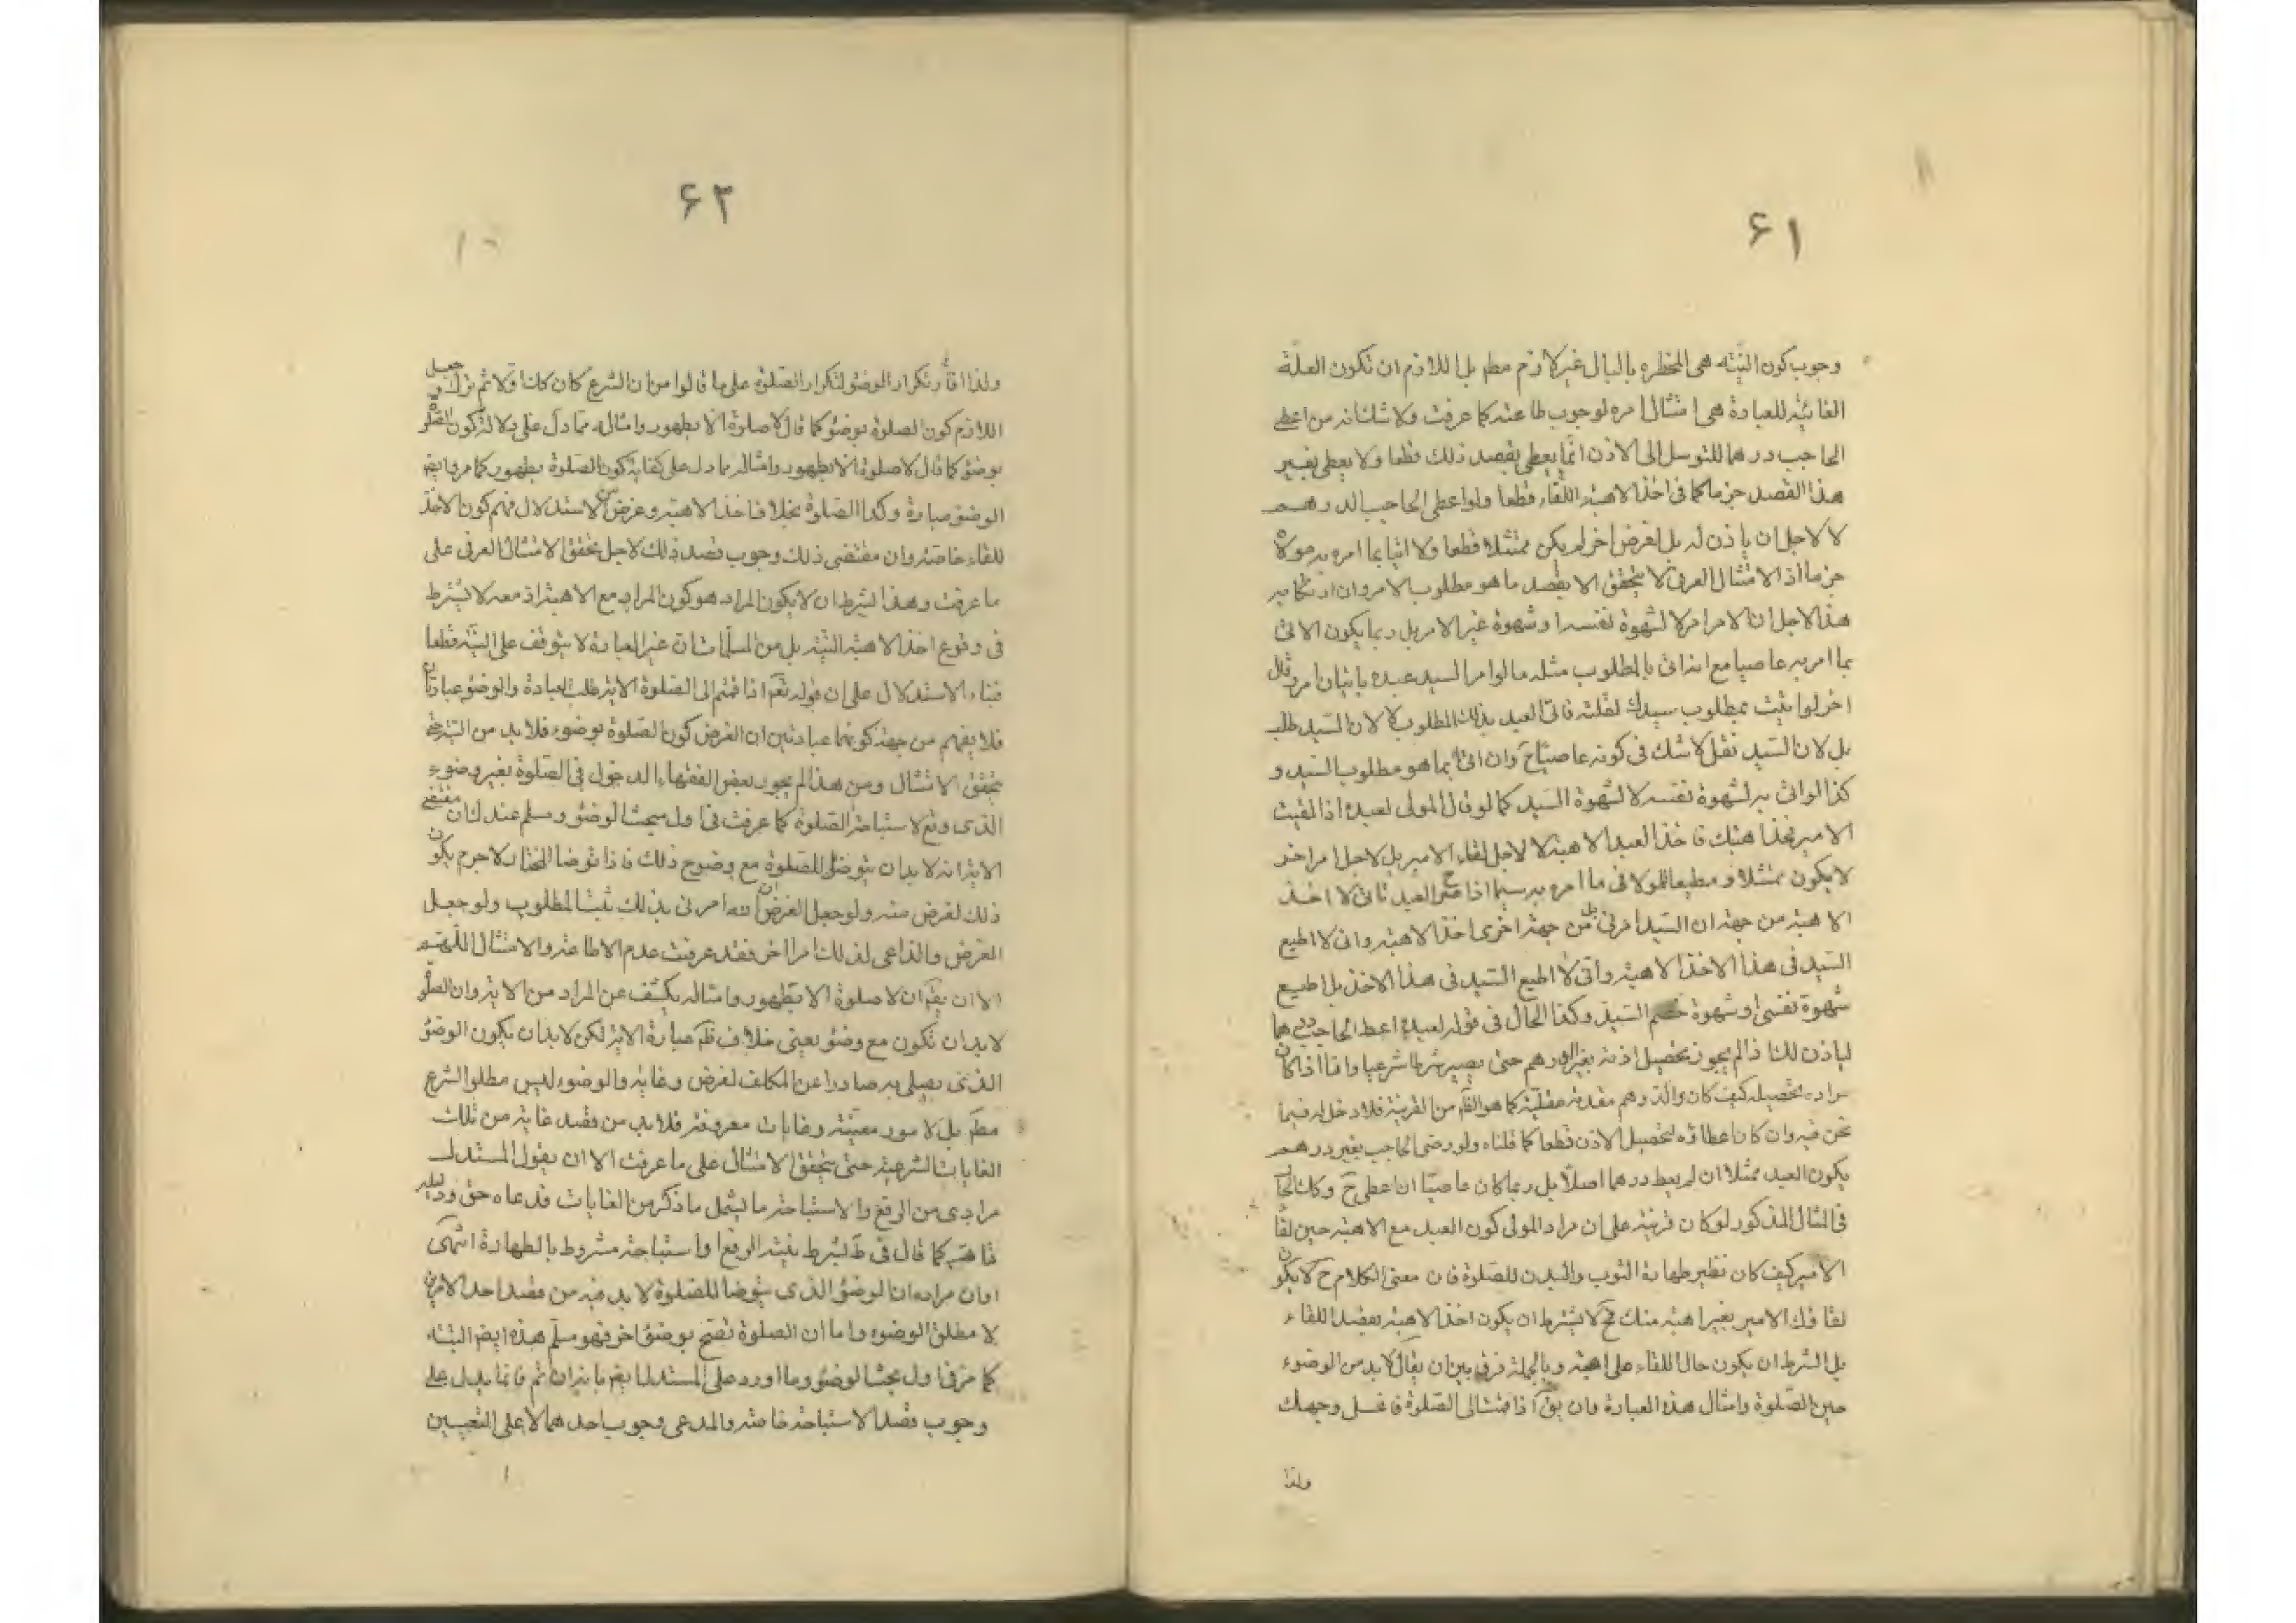 ۶۱
وجوب كون النيّة هى المخطره بالبال غير لازم مطم بل اللازم ان تكون العلّة
الغائيّة للعبادة هى امتثال امره لوجوب طاعته كما عرفت ولا شك انه من اعطى
الحاجب درهما للتوسل الى الاذن انّما يعطى بقصد ذلك قطعا ولا يعطى بغير
هذا القصد جزما كما فى اخذ الاهبة للّقاء قطعا ولو اعطى الحاجب الدرهم
لا لاجل ان ياذن له بل لغرض اخر لم يكن ممتثلا قطعا ولا اتيا بما امره به مولاه
جزما اذ الامتثال العرفى لا يتحقق الا بقصد ما هو مطلوب الامر وان ارتكابه
هذا لاجل ان الامر امر لا لشهوة نفسه او شهوة غير الامر بل ربما يكون الاتى
بما امر به عاصيا مع اتيانه بالمطلوب مثله ما لو امر السيد عبده باتيان امر وقال
اخر لو اتيت بمطلوب سيدك لقتلته فاتى العبد بذلك المطلوب لا لان السيد طلبه
بل لان السيد نقل لا شك فى كونه عاصيا ح وان اتى بما هو مطلوب السيد و
كذا لو اتى به لشهوة نفسه لا لشهوة السيد كما لو قال المولى لعبده اذا لقيت
الامير فخذ اهبتك فاخذ العبد الاهبة لا لاجل لقاء الامير بل لاجل امر اخر
لا يكون ممتثلا و مطيعا للمولا فى ما امره به سيما اذا العبد بانى لا اخذ
الاهبة من جهة ان السيد امرنى بل من جهة اخرى اخذ الاهبة وانى لا اطيع
السيد فى هذا الاخذ الاهبة وانى لا اطيع السيد فى هذا الاخذ بل اطيع
شهوة نفسى او شهوة خصم السيد وكذا الحال فى قوله لعبده اعط الحاجب درهما
لياذن لك اذ لم يجوز تحصيل اذنه بغير الدرهم حتى يصير شرطا شرعيا واما اذا كان
مراده تحصيله كيف كان والدرهم مقدمة عقلية كما هو الظّم من القرينة فلا دخل له فيما
نحن فيه وان كان اعطاؤه لتحصيل الاذن قطعا كما قلناه ولو رضى الحاجب بغير درهم
يكون العبد ممتثلا ان لم يعط درهما اصلا بل ربما كان عاصيّا ان اعطى ح وكك الحا
فى المثال المذكور لو كان قرينة على ان مراد المولى كون العبد مع الاهبة حين لقا
الامير كيف كان نظير طهارة الثوب والبدن للصلوة فان معنى الكلام ح لا يكون
لقاؤك الامير بغير اهبة منك فح لا يشترط ان يكون اخذ الاهبة بقصد اللقاء
بل الشرط ان يكون حال اللقاء على اهبة وبالجملة فرق بين ان يقال لا بد من الوضوء
حين الصّلوة وامثال هذه العبارة وان يق اذا قمت الى الصّلوة فاغسل وجهك
ولذا
۶۲
ولذا تكرار الوضؤ لتكرار الصّلوة على ما قالوا من ان الشرع كان كانا اوّلا ثم نزل و جعل
اللازم كون الصلوة بوضؤ كما قال لا صلوة الا بطهور وامثاله مما دل على كون الصلوة
بوضؤ كما قال لا صلوة الا بطهور وامثاله مما دل على كفاية كون الصّلوة بطهور كما مر وايضم
الوضؤ عبارة وكذا الصّلوة بخلاف اخذ الاهبة وغرض الاستدلال فهم كون الاخذ
للقاء خاصّة وان مقتضى ذلك وجوب قصد ذلك لاجل تحقق الامتثال العرفى على
ما عرفت وهذا الشرط ان لا يكون المراد هو كون المراد مع الاهبة اذ معه لا يشترط
فى وقوع اخذ الاهبة النيّة بل من المسلمات ان غير العبادة لا يتوقف على النيّة قطعا
فبناء الاستدلال على ان قوله تعم اذا قمتم الى الصّلوة الاية طلب لعبادة والوضؤ عبادتان
فلا يفهم من جهة كونهما عبادتين ان الغرض كون الصّلوة بوضوء فلا بد من النيّة فى
تحقق الامتثال ومن هذا لم يجوز بعض الفقهاء الدخول فى الصّلوة بغير وضوء
الذى وقع لاستباحة الصّلوة كما عرفت فى اول مبحث الوضؤ ومسلم عندك ان مقتضى
الاية انه لا بد ان يتوضؤ للصّلوة مع وضوح ذلك فاذا توضا المختار لا جرم يكون
ذلك لغرض منه ولو جعل الغرض ان الله امرنى بذلك ثبت المطلوب ولو جعل
الغرض والداعى لذلك امرا اخر فقد عرفت عدم الاطاعة والامتثال اللّهم
الا ان يقم ان لا صلوة الا بطهور وامثاله يكشف عن المراد من الاية وان الصلو
لا بد ان تكون مع وضؤ يعنى خلاف ظم عبارة الاية لكن لا بد ان يكون الوضؤ
الذى يصلى به صادرا عن المكلف لغرض وغاية والوضوء ليس مطلوب الشرع
مطم بل لامور معيّنة وغايات معروفة فلا بد من قصد غاية من تلك
الغايات الشرعية حتى يتحقق الامتثال على ما عرفت الا ان يقول المستدل
مرادى من الرفع والاستباحة ما يشمل ما ذكر من الغايات فدعاه حق ودليله
ظاهر كما قال فى ط يشرط بنية الرفع او استباحة مشروط بالطهارة انتهى
اوان مراده ان الوضؤ الذى يتوضا للصّلوة لا بد فيه من قصد احد الامرين
لا مطلق الوضوء واما ان الصلوة تصّح بوضؤ اخر فهو مسلّم هذه ايضم البتّة
كما مرّ فى اول مبحث الوضؤ وما اورد على المستدل ايضم بانه ان تم فانما يدل على
وجوب قصد الاستباحة خاصّة والمدعى وجوب احدهما لا على التعيين